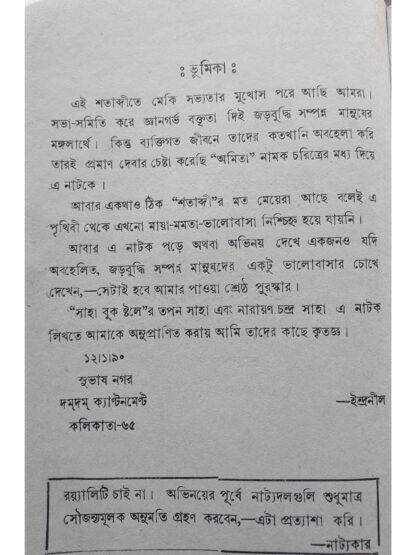 : ভূমিকা :
এই শতাব্দীতে মেকি সভ্যতার মুখোস পরে আছি আমরা।
সভা-সমিতি করে জ্ঞানগর্ভ বক্তৃতা দিই জড়বুদ্ধি সম্পন্ন মানুষের
মঙ্গলার্থে। কিন্তু ব্যক্তিগত জীবনে তাদের কতখানি অবহেলা করি
তারই প্রমাণ দেবার চেষ্টা করেছি “অমিতা” নামক চরিত্রের মধ্য দিয়ে
এ নাটকে।
আবার একথাও ঠিক “শতাব্দী”র মত মেয়েরা আছে বলেই এ
পৃথিবী থেকে এখনো মায়া-মমতা-ভালোবাসা নিশ্চিহ্ন হয়ে যায়নি।
আবার এ নাটক পড়ে অথবা অভিনয় দেখে একজনও যদি
অবহেলিত, জড়বুদ্ধি সম্পন্ন মানুষদের একটু ভালোবাসার চোখে
দেখেন,—সেটাই হবে আমার পাওয়া শ্রেষ্ঠ পুরস্কার।
“সাহা বুক ষ্টলে”র তপন সাহা এবং নারায়ণ চন্দ্র সাহা এ নাটক
লিখতে আমাকে অনুপ্রাণিত করায় আমি তাদের কাছে কৃতজ্ঞ।
১২।১।৯০
সুভাষ নগর
দমদম্ ক্যান্টনমেন্ট
—ইন্দ্রনীল
কলিকাতা-৬৫
রয়্যালিটি চাই না। অভিনয়ের পূর্বে নাট্যদলগুলি শুধুমাত্র
সৌজন্যমূলক অনুমতি গ্রহণ করবেন,—এটা প্রত্যাশা করি।
—নাট্যকার